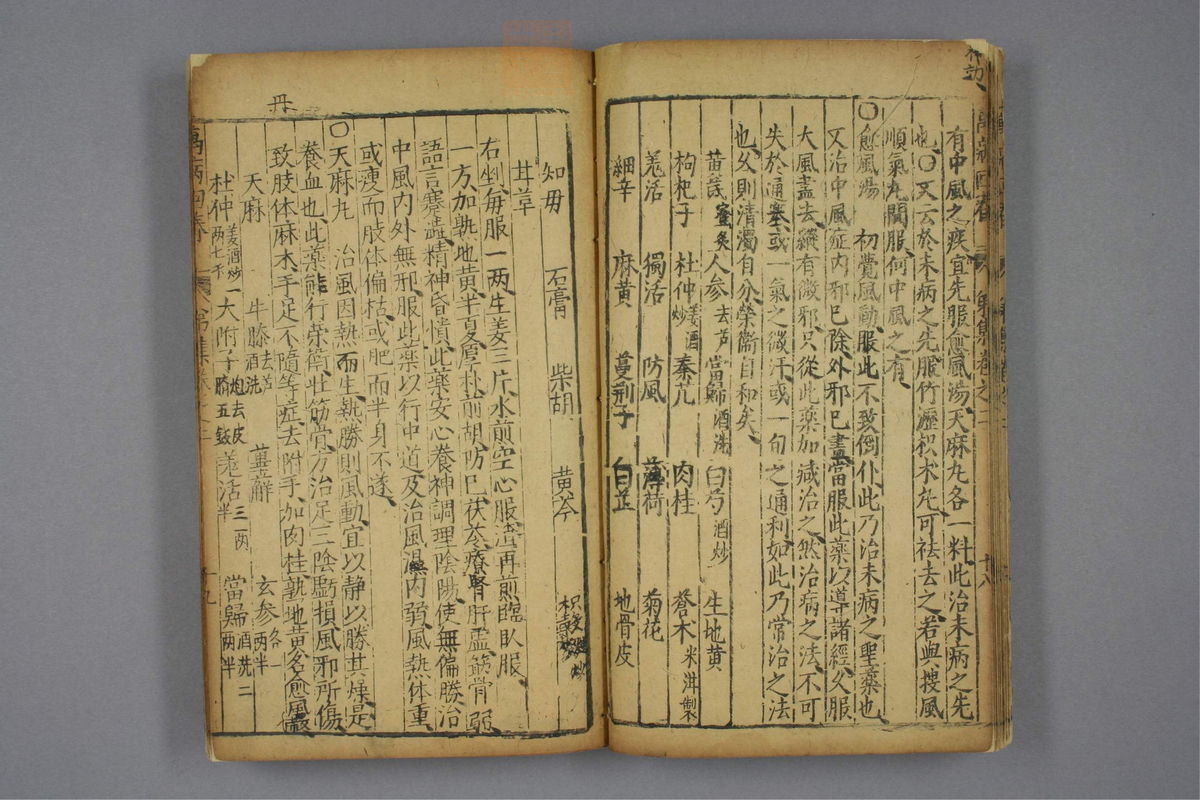 有中風之疾宜先服愈風湯天麻丸各一料此治未病之先
也〇又云於未病之先服竹瀝枳朮丸可祛去之若與搜風
順氣丸間服何中風之有
〇愈風湯 初覺風動服此不致倒仆此乃治未病之聖藥也
又治中風症内邪已除外邪已盡當服此藥以導諸經久服
大風盡去縱有微邪只從此藥加减治之然治病之法不可
失於通塞或一氣之微汗或一旬之通利如此乃常治之法
也久則清濁自分榮衞自和矣
黄芪蜜炙 人參去芦 當歸酒洗 白芍酒炒 生地黄
枸杞子 杜仲姜酒炒 秦艽 肉桂 蒼朮米泔製
羗活 獨活 防風 薄荷 菊花
細辛 麻黄 蔓荆子 白芷 地骨皮
知母 石膏 柴胡 黄芩 枳
甘草
右剉每服一两生姜三片水煎空心服渣再煎臨臥服
一方加熟地黄半夏厚朴前胡防已茯苓療腎肝虚筋骨弱
語言蹇澁精神昏憒此藥安心養神調理陰陽使無偏勝治
中風内外無邪服此藥以行中道及治風濕内弱風熱体重
或瘦而肢体偏枯或肥而半身不遂
〇天麻丸 治風因熱而生熱勝則風動宜以静以勝其燥是
養血也此藥能行榮衞壮筋骨方治足三陰虧損風邪所傷
致肢体麻木手足不隨等症去附子加肉桂熟地黄名愈風
天麻 牛膝去芦酒洗 萆薢三两 玄參各一两半
杜仲姜酒炒两七千 大附子炮去皮臍五錢 羗活半 當歸酒洗二两半